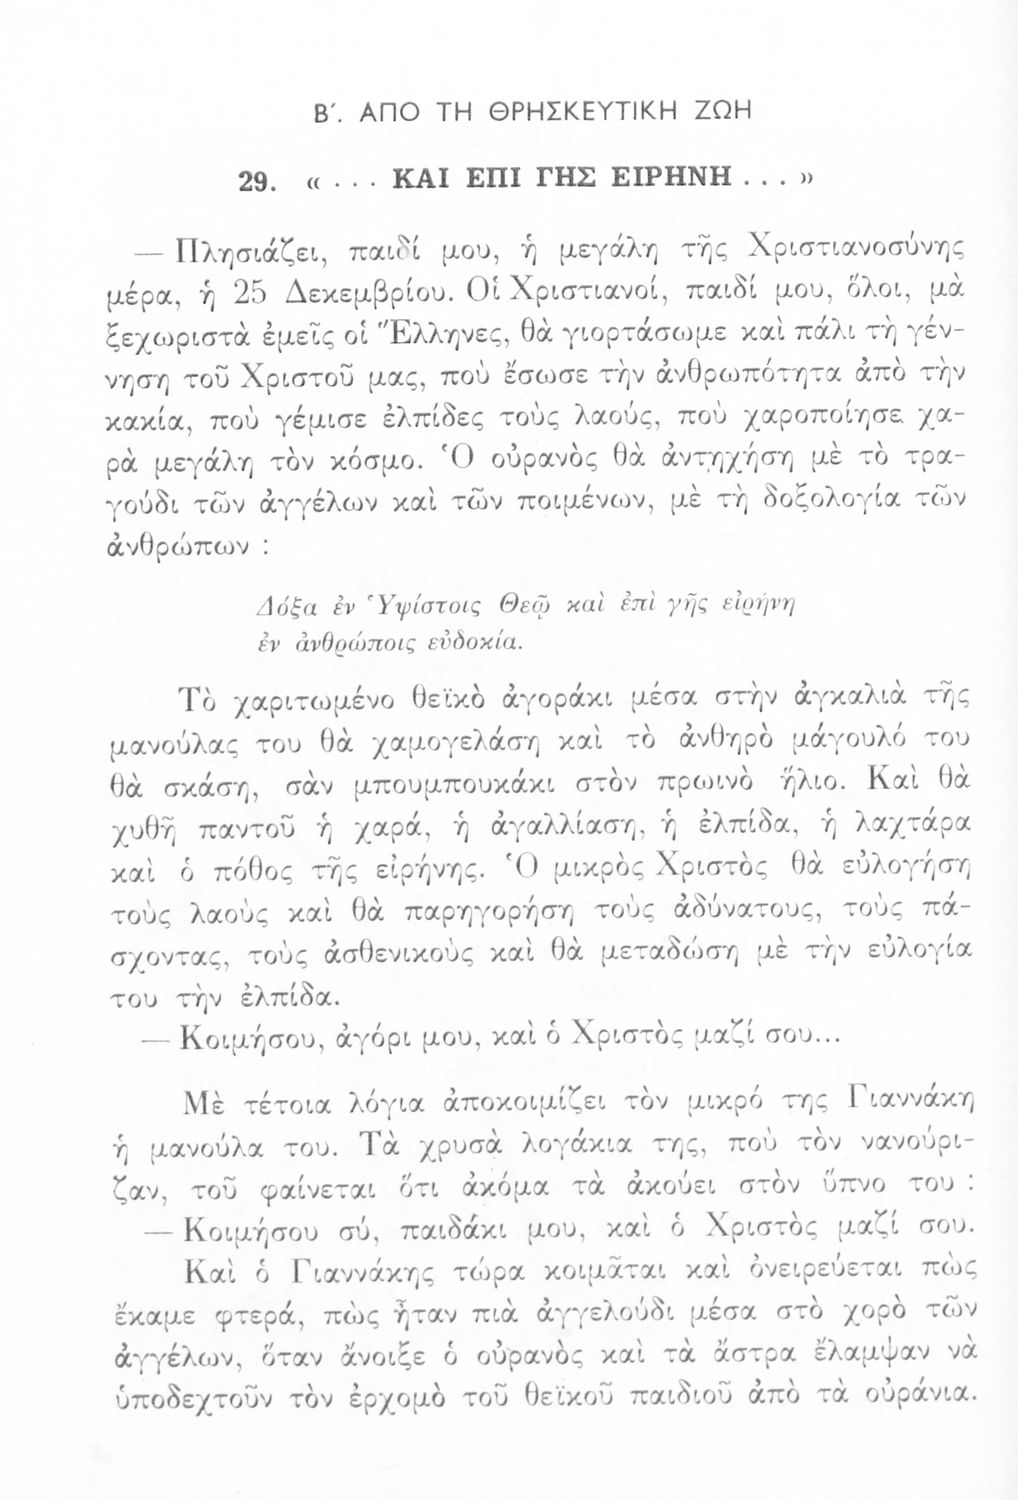 Β´. ΑΠΟ ΤΗ ΘΡΗΣΚΕΥΤΙΚΗ ΖΩΗ
29. « . . . ΚΑΙ ΕΠΙ ΓΗΣ ΕΙΡΗΝΗ . . . »
— Πλησιάζει, παιδί μου, ἡ μεγάλη τῆς Χριστιανοσύνης
μέρα, ἡ 25 Δεκεμβρίου. Οἱ Χριστιανοί, παιδί μου, ὅλοι, μὰ
ξεχωριστὰ ἐμεῖς οἱ Ἕλληνες, θὰ γιορτάσωμε καὶ πάλι τὴ γέν-
νηση τοῦ Χριστοῦ μας, ποὺ ἔσωσε τὴν ἀνθρωπότητα ἀπὸ τὴν
κακία, ποὺ γέμισε ἐλπίδες τοὺς λαούς, ποὺ χαροποίησε χα-
ρὰ μεγάλη τὸν κόσμο. Ὁ οὐρανὸς θὰ ἀντηχήση μὲ τὸ τρα-
γούδι τῶν ἀγγέλων καὶ τῶν ποιμένων, μὲ τὴ δοξολογία τῶν
ἀνθρώπων :
Δόξα ἐν Ὑψίστοις Θεῷ καὶ ἐπὶ γῆς εἰρήνη
ἐν ἀνθρώποις εὐδοκία.
Τὸ χαριτωμένο θεϊκὸ ἀγοράκι μέσα στὴν ἀγκαλιὰ τῆς
μανούλας του θὰ χαμογελάση καὶ τὸ ἀνθηρὸ μάγουλό του
θὰ σκάση, σὰν μπουμπουκάκι στὸν πρωινὸ ἥλιο. Καὶ θὰ
χυθῆ παντοῦ ἡ χαρά, ἡ ἀγαλλίαση, ἡ ἐλπίδα, ἡ λαχτάρα
καὶ ὁ πόθος τῆς εἰρήνης. Ὁ μικρὸς Χριστὸς θὰ εὐλογήση
τοὺς λαοὺς καὶ θὰ παρηγορήση τοὺς ἀδύνατους, τοὺς πά-
σχοντας, τοὺς ἀσθενικοὺς καὶ θὰ μεταδώση μὲ τὴν εὐλογία
του τὴν ἐλπίδα.
— Κοιμήσου, ἀγόρι μου, καὶ ὁ Χριστὸς μαζί σου...
Μὲ τέτοια λόγια ἀποκοιμίζει τὸν μικρό της Γιαννάκη
ἡ μανούλα του. Τὰ χρυσὰ λογάκια της, ποὺ τὸν νανούρι-
ζαν, τοῦ φαίνεται ὅτι ἀκόμα τὰ ἀκούει στὸν ὕπνο του :
— Κοιμήσου σύ, παιδάκι μου, καὶ ὁ Χριστὸς μαζί σου.
Καὶ ὁ Γιαννάκης τώρα κοιμᾶται καὶ ὀνειρεύεται πὼς
ἔκαμε φτερά, πὼς ἦταν πιὰ ἀγγελούδι μέσα στὸ χορὸ τῶν
ἀγγέλων, ὅταν ἄνοιξε ὁ οὐρανὸς καὶ τὰ ἄστρα ἔλαμψαν νὰ
ὑποδεχτοῦν τὸν ἐρχομὸ τοῦ θεϊκοῦ παιδιοῦ ἀπὸ τὰ οὐράνια.